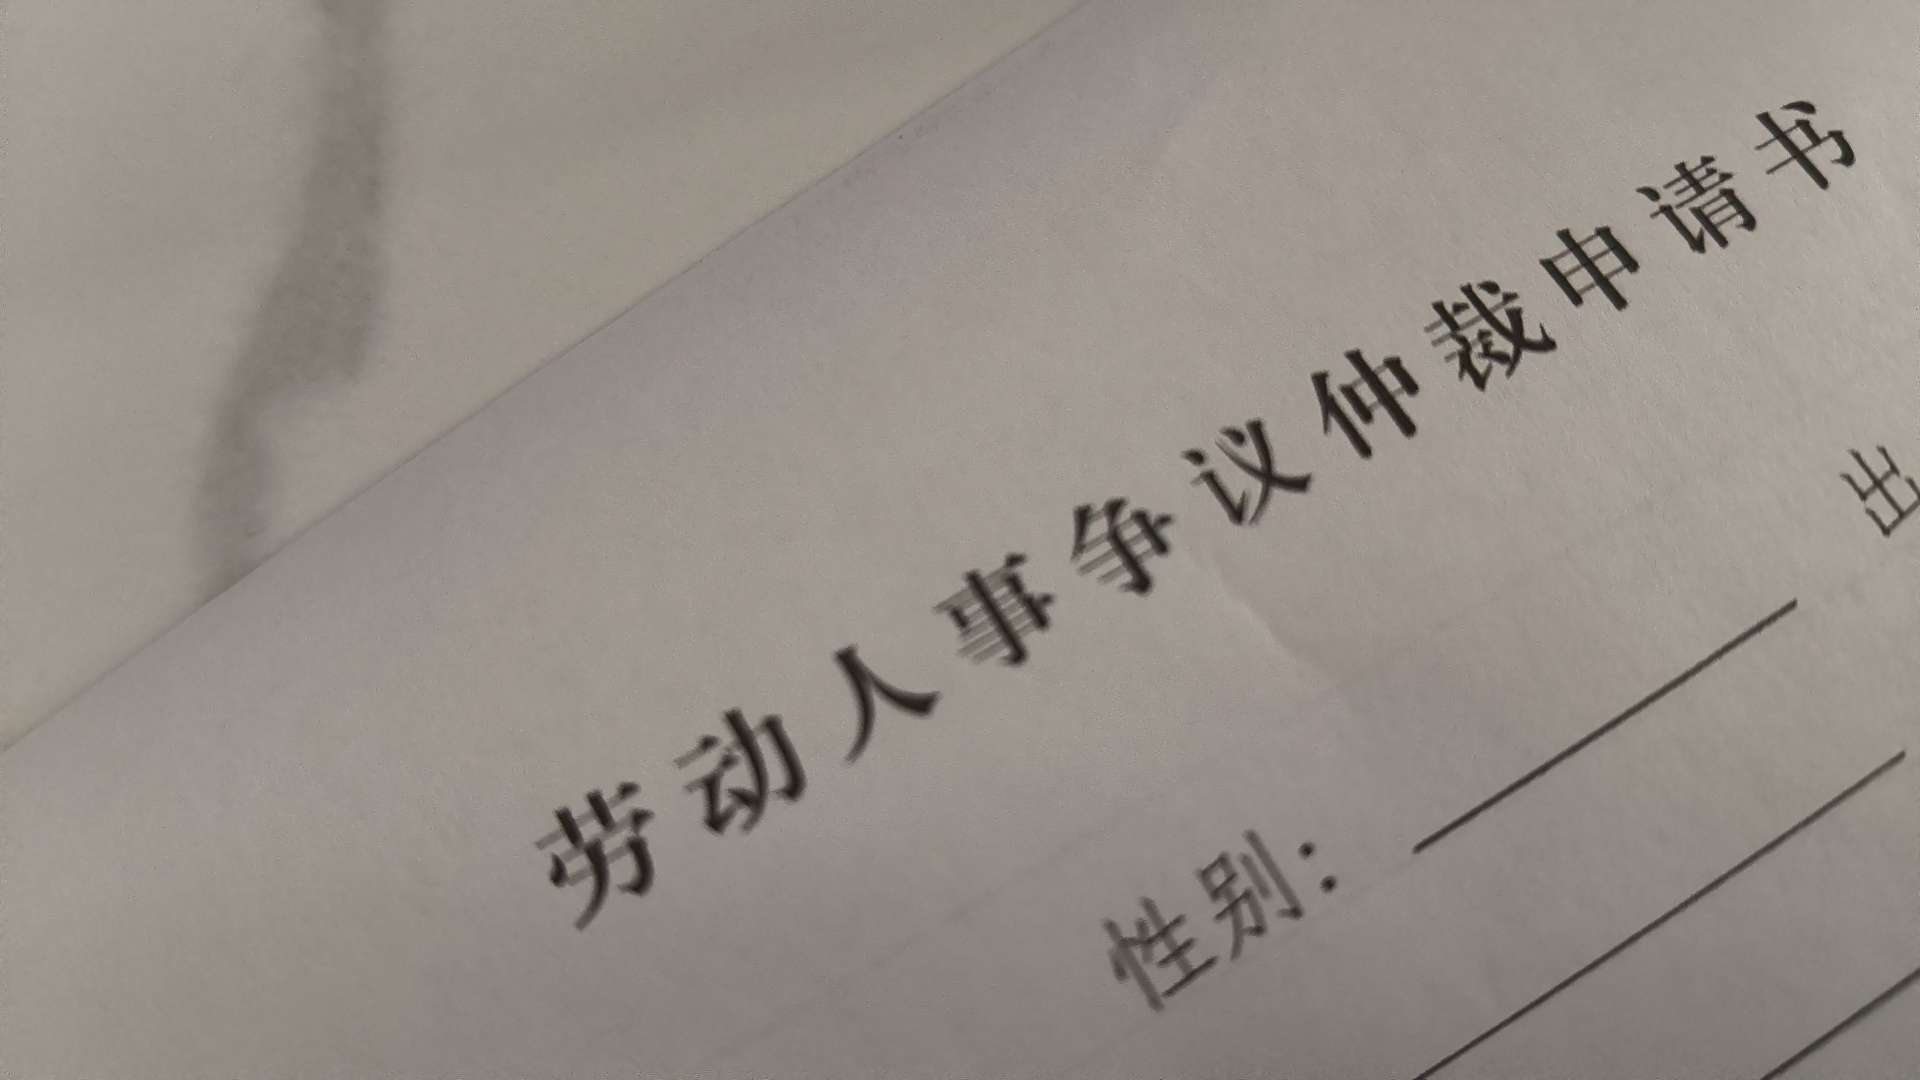 劳动人事争议仲裁申请书
性别： 出